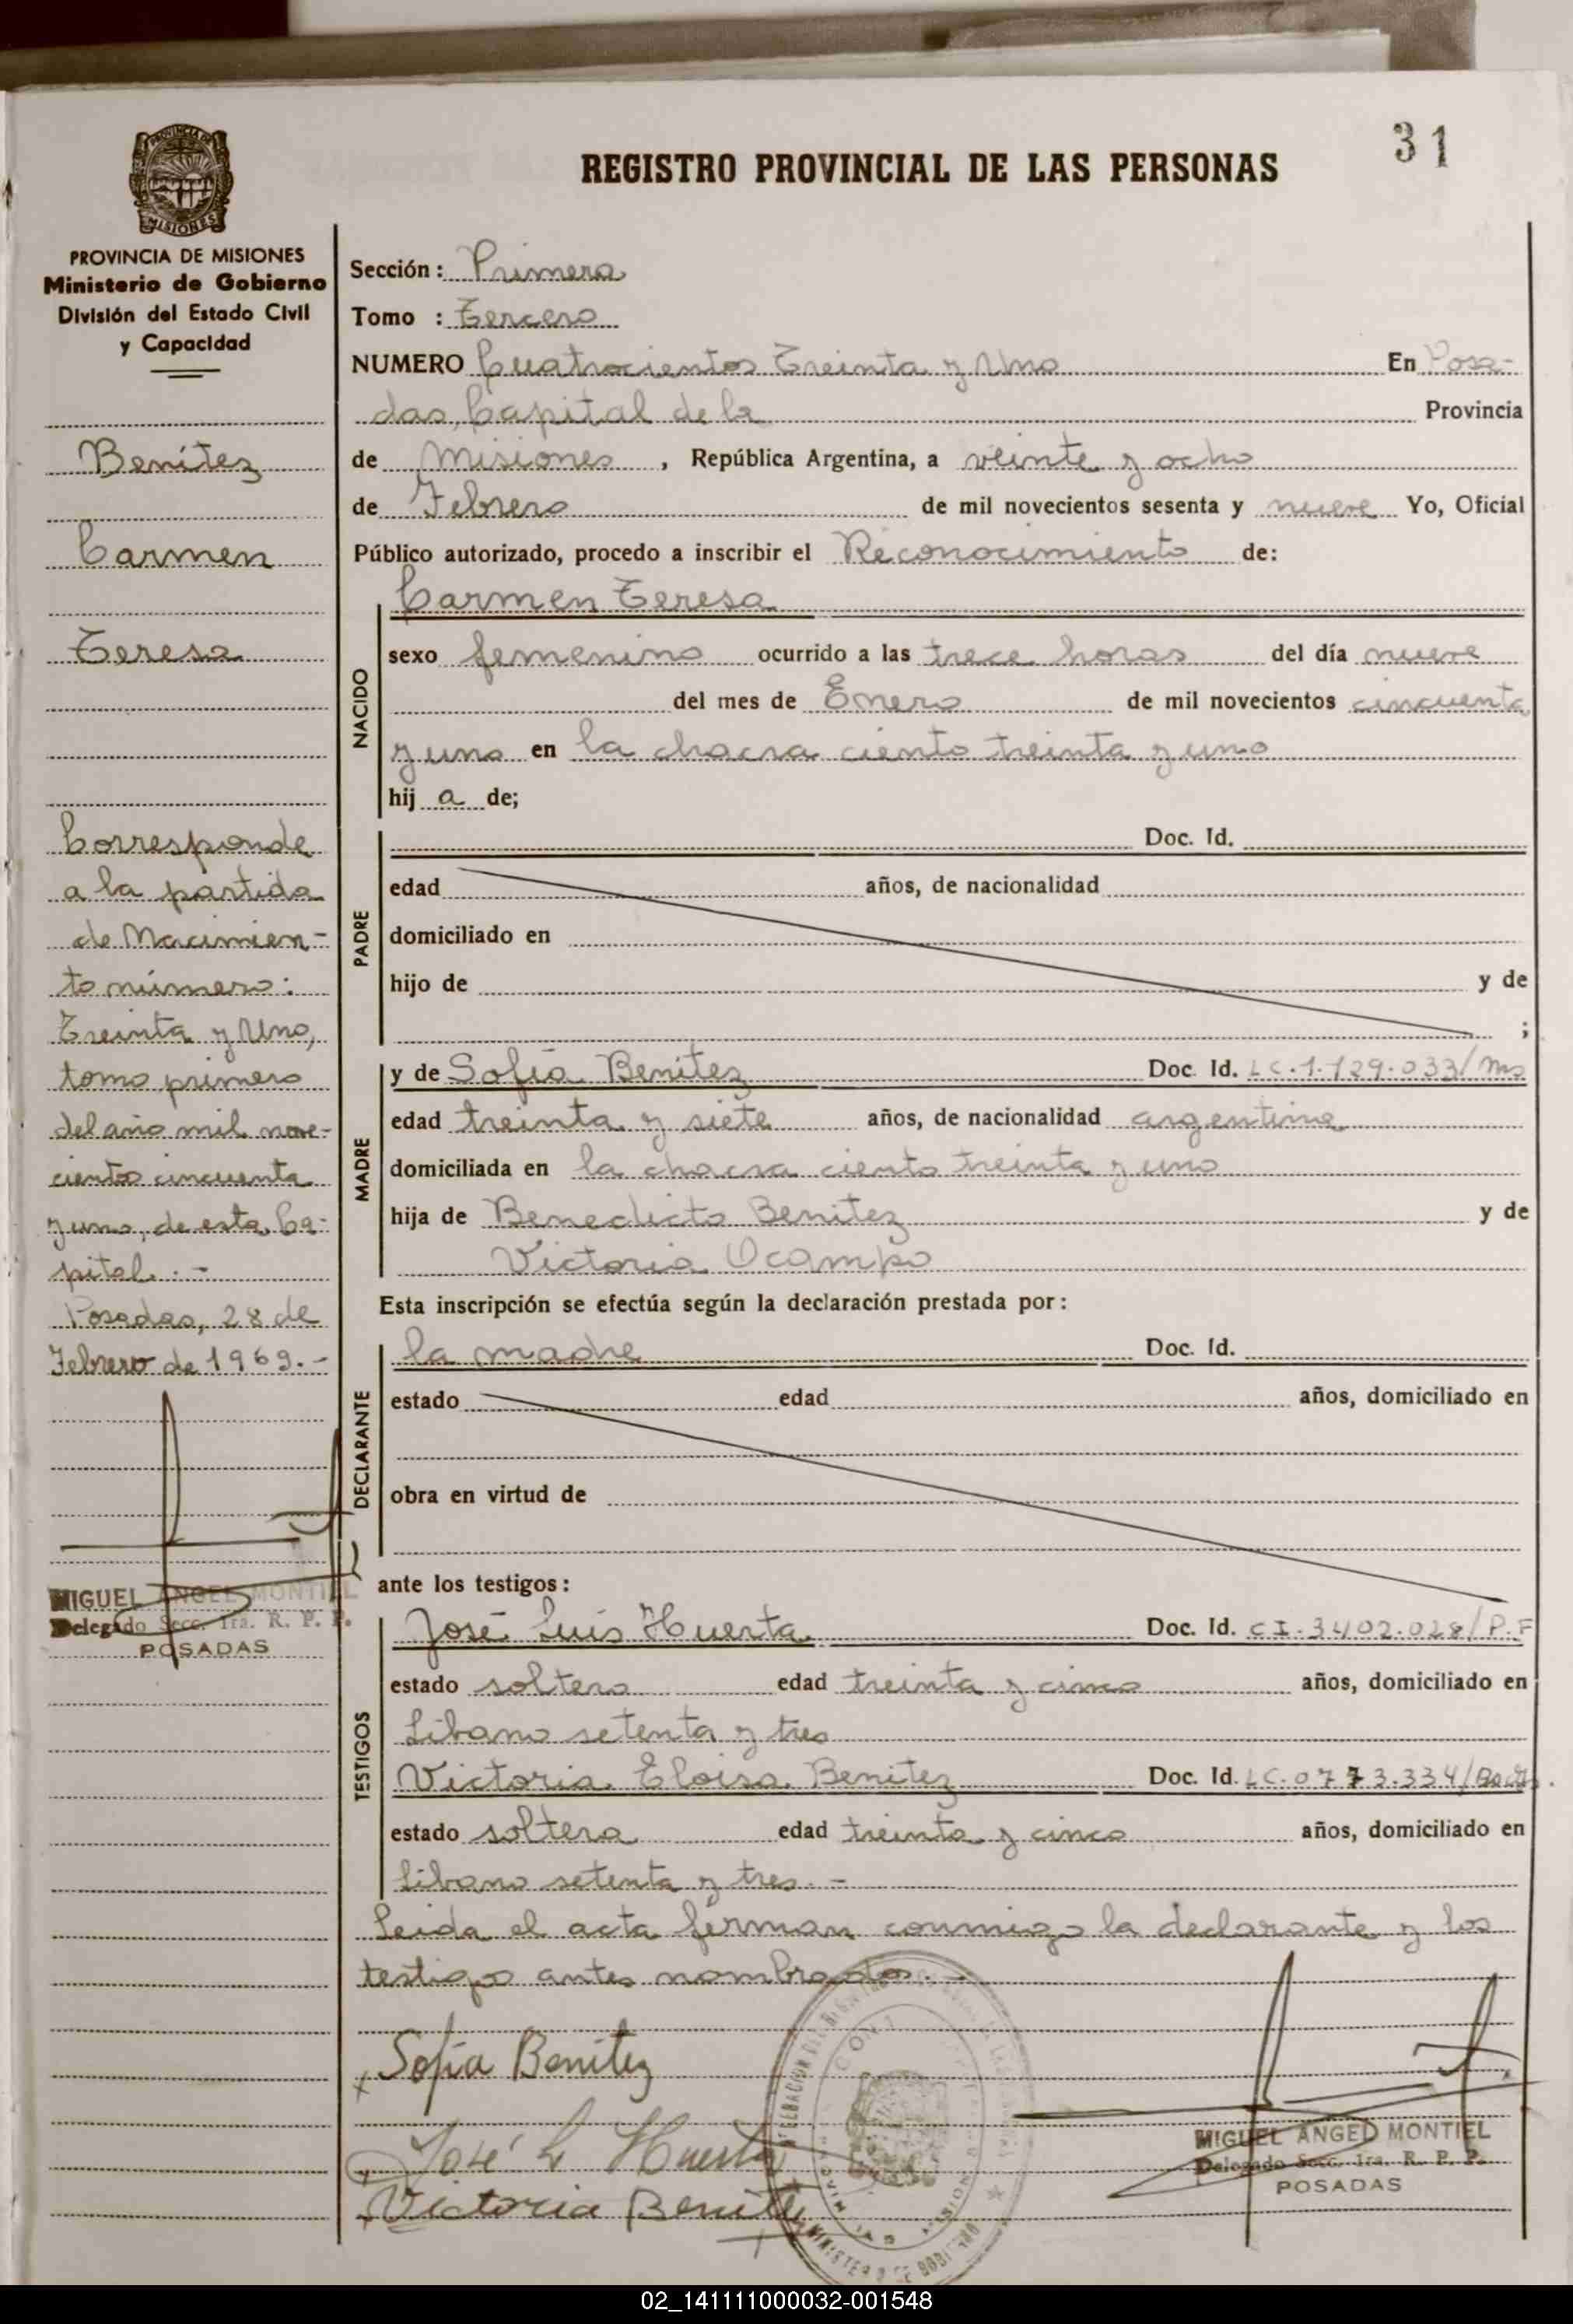 31
REGISTRO PROVINCIAL DE LAS PERSONAS
PROVINCIA DE MISIONES
Ministerio de Gobierno
División del Estado Civil
y Capacidad
Benítez
Carmen
Teresa
Corresponde
a la partida
de Nacimien-
to número:
Treinta y Uno,
tomo primero
del año mil nove-
cientos cincuenta
y uno, de esta Ca-
pital.-
Posadas, 28 de
Febrero de 1969.-
MIGUEL ANGEL MONTIEL
Delegado Secc. 1ra. R. P. P.
POSADAS
Sección: Primera
Tomo : Tercero
NUMERO Cuatrocientos Treinta y Uno En Posa-
das, Capital de la Provincia
de Misiones, República Argentina, a veinte y ocho
de Febrero de mil novecientos sesenta y nueve Yo, Oficial
Público autorizado, procedo a inscribir el Reconocimiento de:
NACIDO
Carmen Teresa
sexo femenino ocurrido a las trece horas del día nueve
del mes de Enero de mil novecientos cincuenta
y uno en la chacra ciento treinta y uno
hij a de;
PADRE
Doc. Id.
edad años, de nacionalidad
domiciliado en
hijo de y de
;
MADRE
y de Sofía Benítez Doc. Id. LC.1.129.033/Ms
edad treinta y siete años, de nacionalidad argentina
domiciliada en la chacra ciento treinta y uno
hija de Benedicto Benitez y de
Victoria Ocampo
Esta inscripción se efectúa según la declaración prestada por:
DECLARANTE
la madre Doc. Id.
estado edad años, domiciliado en
obra en virtud de
ante los testigos:
TESTIGOS
José Luis Huerta Doc. Id. CI.3402.028/P.F
estado soltero edad treinta y cinco años, domiciliado en
Libano setenta y tres
Victoria Eloisa Benitez Doc. Id. LC.0773.334/
estado soltera edad treinta y cinco años, domiciliado en
Libano setenta y tres.-
Leida el acta firman conmigo la declarante y los
testigo antes nombrados.-
Sofía Benítez
José L Huerta
Victoria Benitez
MINISTERIO DE GOBIERNO
MIGUEL ANGEL MONTIEL
Delegado Secc. 1ra. R. P. P.
POSADAS
02_141111000032-001548